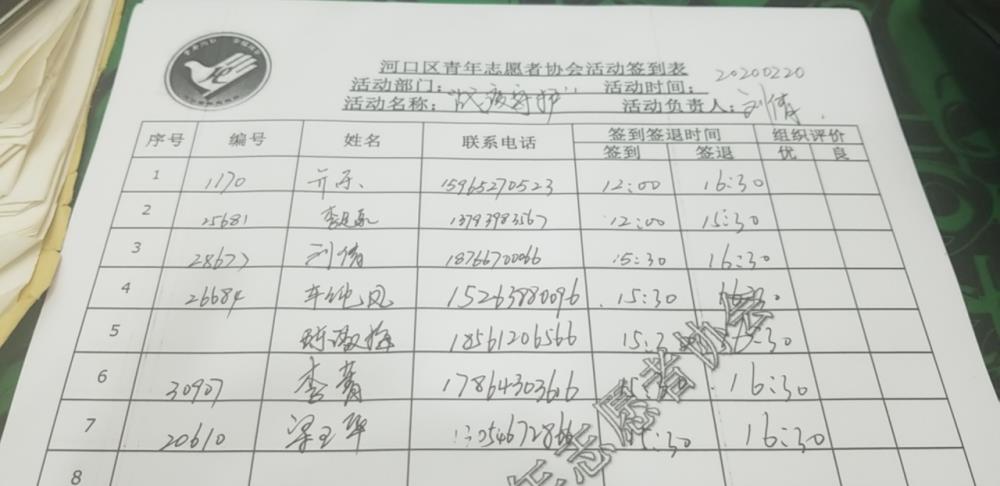 河口区青年志愿者协会活动签到表
活动部门: 活动时间: 20200220
活动名称: 活动负责人: 刘倩
序号 编号 姓名 联系电话 签到签退时间 组织评价
签到 签退 优 良
1 1170 15965270523 12:00 16:30
2 25681 13793983567 12:00 15:30
3 28677 刘倩 18766700066 15:30 16:30
4 26684 车纯凤 15263880096 15:30
5 18561206566
6 30907 李菁 17864303616 15:30 16:30
7 20610 梁玉华 15:30 16:30
8
志愿者协会